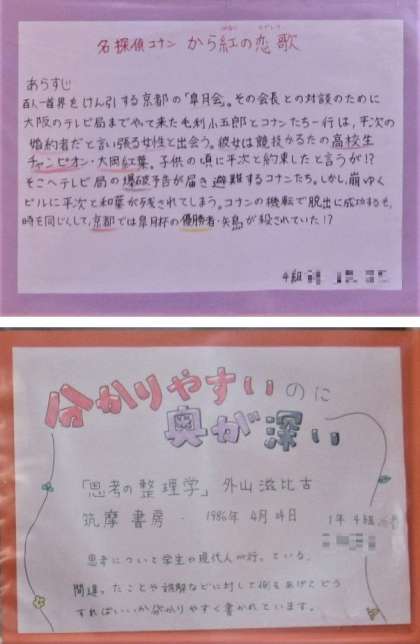 名探偵コナン から紅の恋歌
あらすじ
百人一首界をけん引する京都の「皐月会」。その会長との対談のために
大阪のテレビ局までやって来た毛利小五郎とコナンたち一行は、平次の
婚約者だと言い張る女性と出会う。彼女は競技かるたの高校生
チャンピオン・大岡紅葉。子供の頃に平次と約束したと言うが!?
そこへテレビ局の爆破予告が届き避難するコナンたち。しかし、崩ゆく
ビルに平次と和葉が残されてしまう。コナンの機転で脱出に成功するも、
時を同じくして、京都では皐月杯の優勝者・矢島が殺されていた!?
4組
分かりやすいのに
奥が深い
「思考の整理学」 外山滋比古
筑摩書房・ 1986年 4月24日
1年4組
思考について学生や現代人が行っている、
間違ったことや誤解などに対して例をあげてどう
すればいいか分かりやすく書かれています。